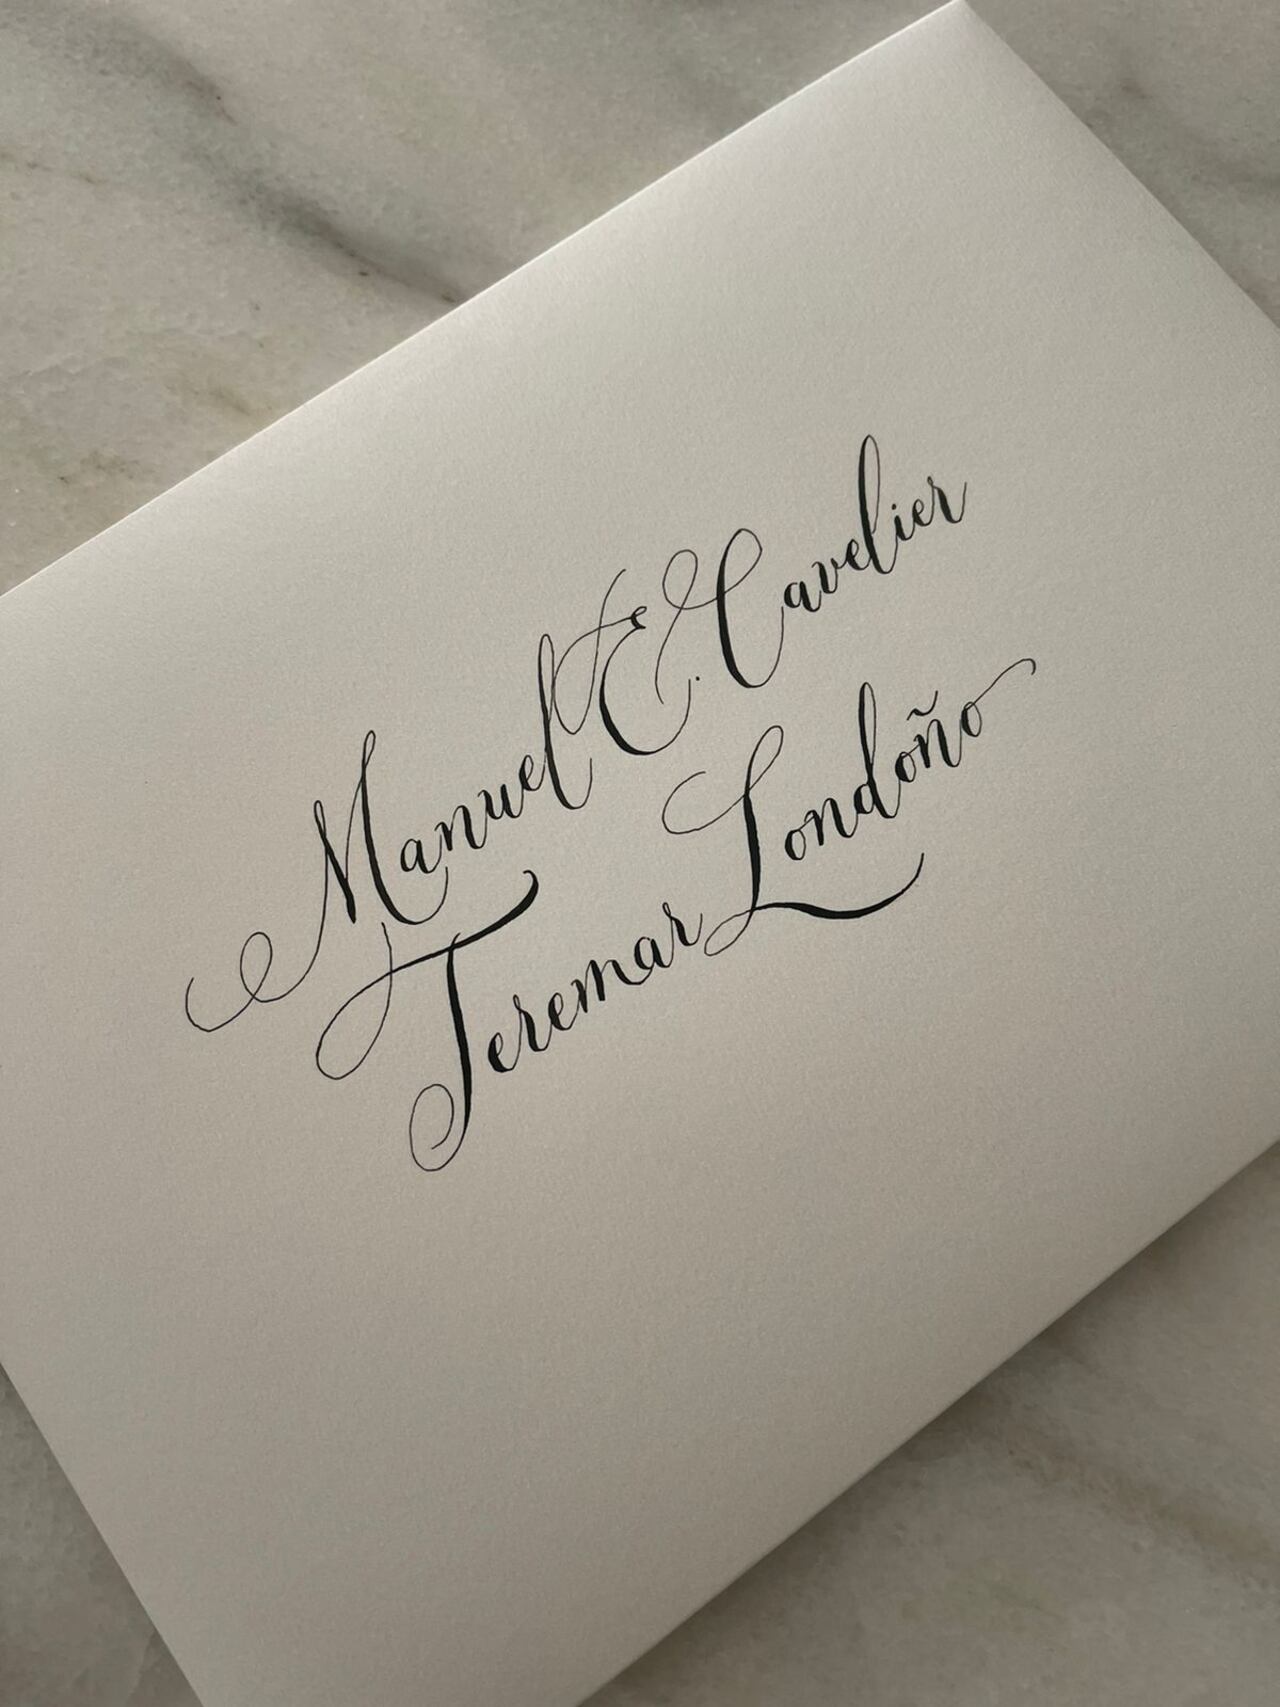 Manuel E. Cavelier
Teremar Londoño